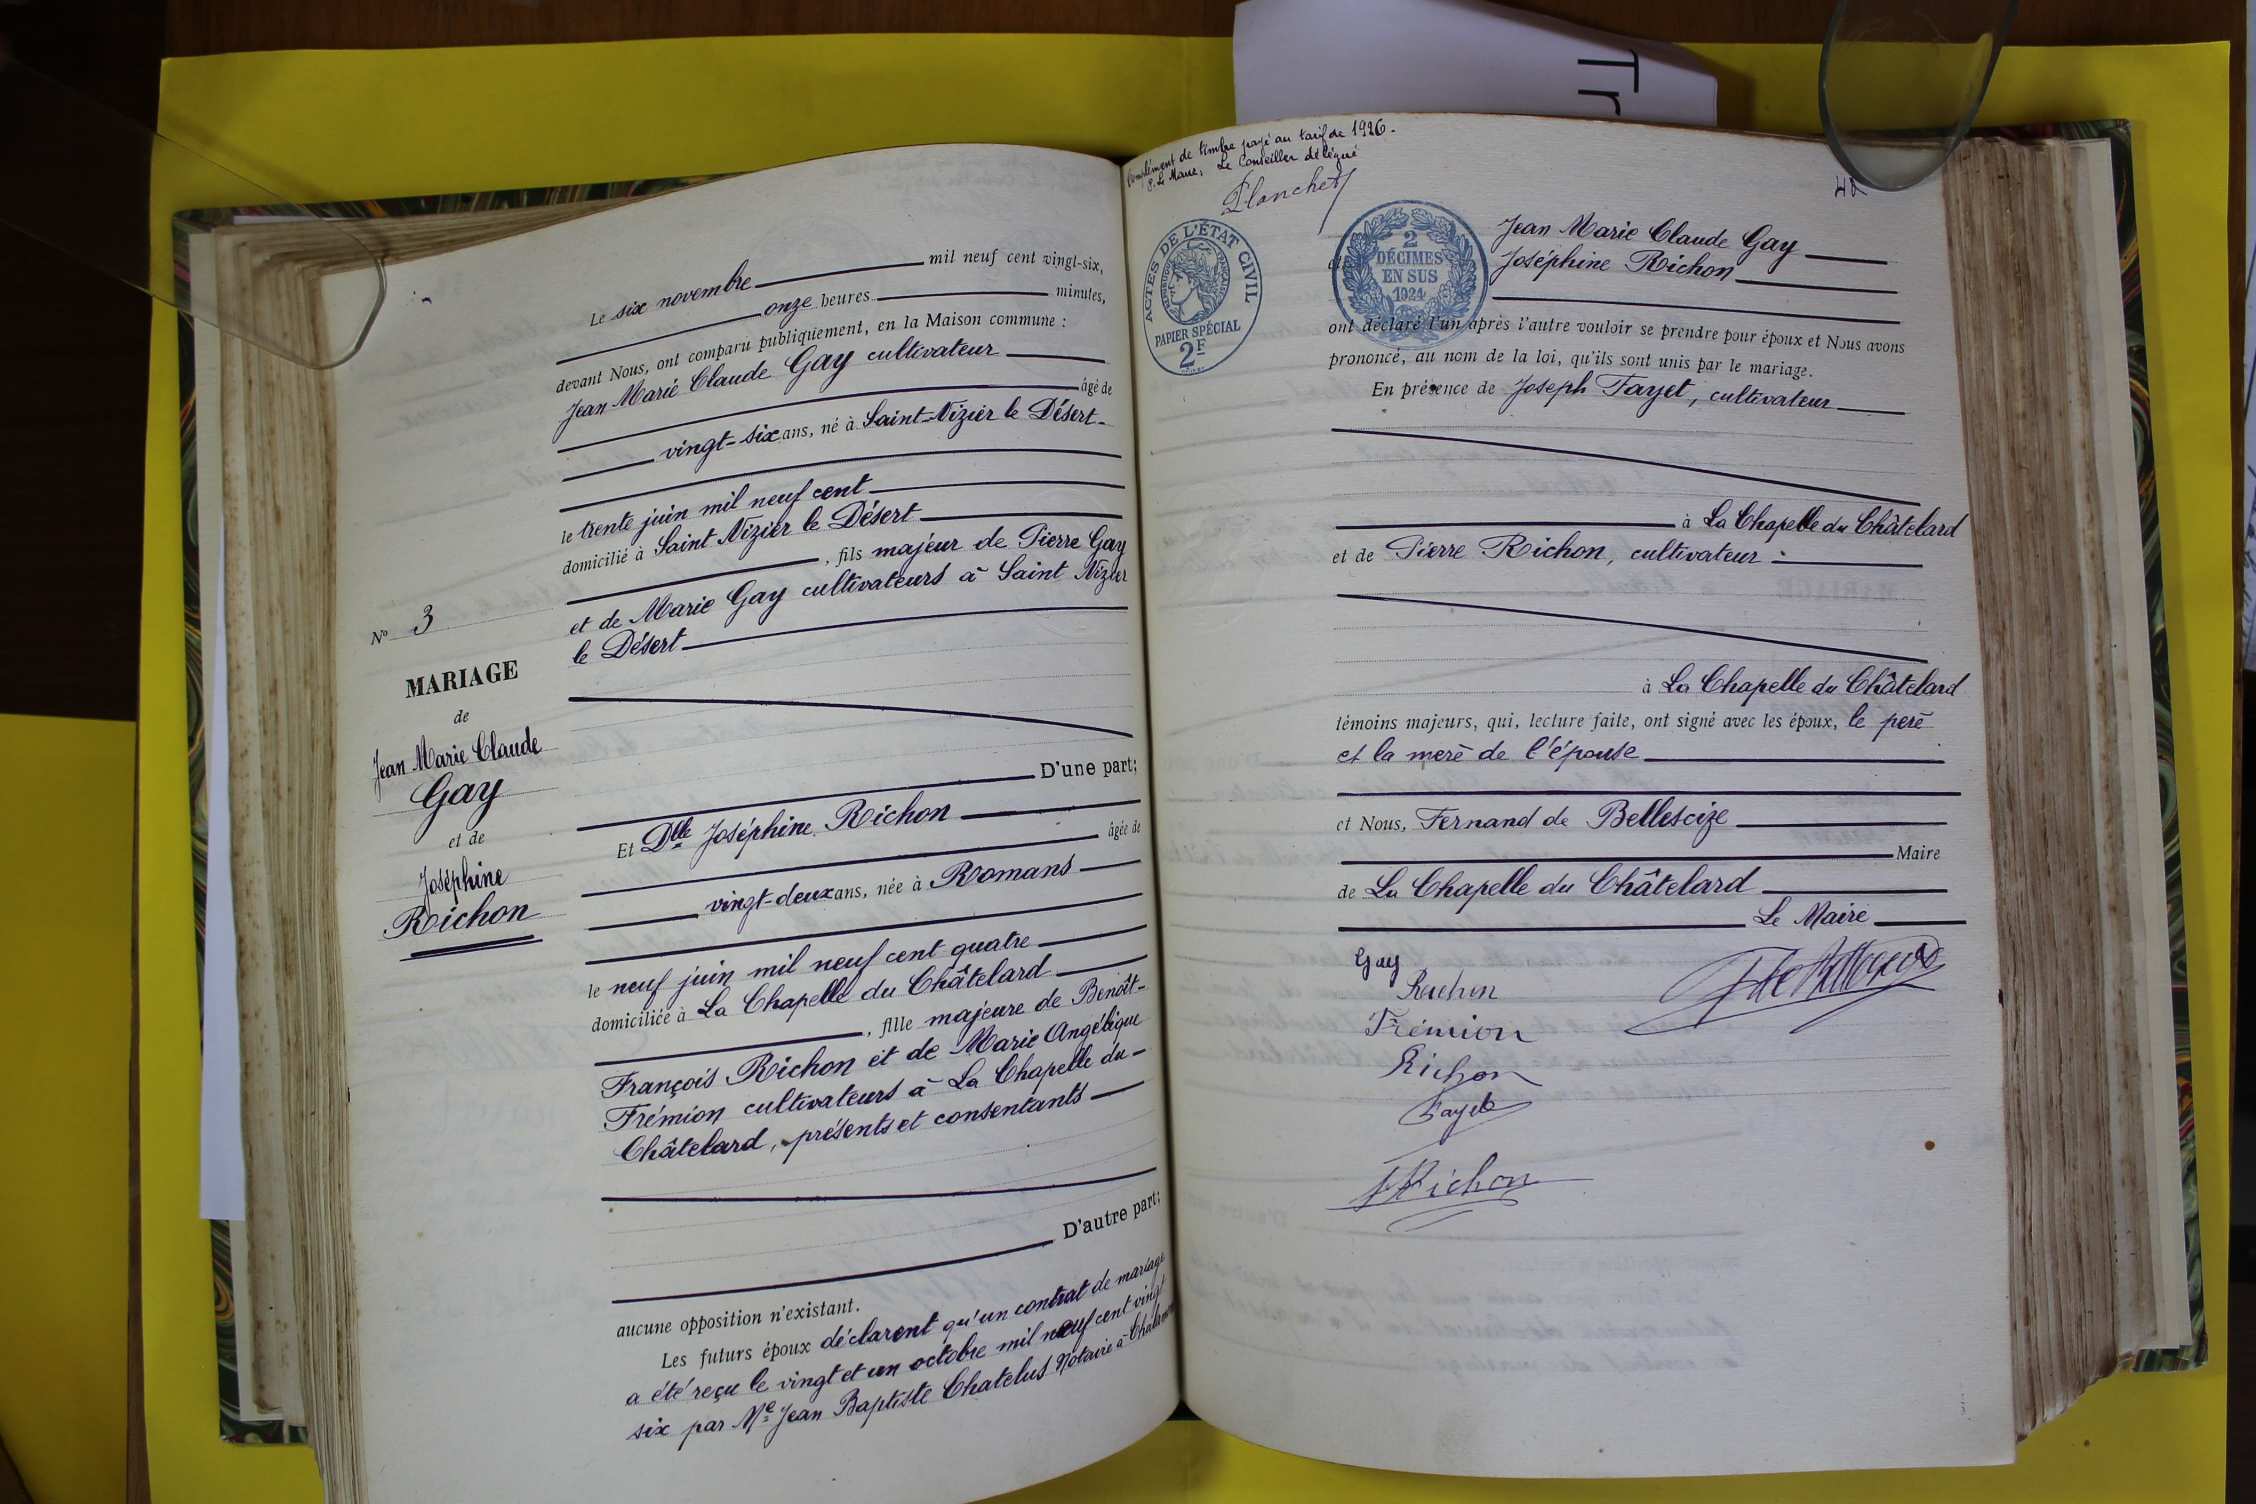 Nº 3
MARIAGE
de
Jean Marie Claude
Gay
et de
Joséphine
Richon
Le six novembre mil neuf cent vingt-six,
onze heures minutes,
devant Nous, ont comparu publiquement, en la Maison commune :
Jean Marie Claude Gay cultivateur
âgé de
vingt-six ans, né à Saint-Nizier le Désert-
le trente juin mil neuf cent
domicilié à Saint Nizier le Désert
, fils majeur de Pierre Gay
et de Marie Gay cultivateurs à Saint Nizier
le Désert
D'une part;
Et Dlle Joséphine Richon
âgée de
vingt-deux ans, née à Romans
le neuf juin mil neuf cent quatre
domiciliée à La Chapelle du Châtelard
, fille majeure de Benoît-
François Richon et de Marie Angélique
Frémion cultivateurs à La Chapelle du-
Châtelard, présents et consentants
D'autre part;
aucune opposition n'existant.
Les futurs époux déclarent qu'un contrat de mariage
a été reçu le vingt et un octobre mil neuf cent vingt
six par Me Jean Baptiste Chatelus Notaire à
Complément de timbre payé au tarif de 1926.
P. Le Maire, Le Conseiller délégué
Planchet
ACTES DE L'ÉTAT CIVIL
RÉPUBLIQUE FRANÇAISE
PAPIER SPÉCIAL
2F
2
DÉCIMES
EN SUS
1924
Tr
Jean Marie Claude Gay
Joséphine Richon
ont déclaré l'un après l'autre vouloir se prendre pour époux et Nous avons
prononcé, au nom de la loi, qu'ils sont unis par le mariage.
En présence de Joseph Fayet, cultivateur
à La Chapelle du Châtelard
et de Pierre Richon, cultivateur
à La Chapelle du Châtelard
témoins majeurs, qui, lecture faite, ont signé avec les époux, le père
et la mère de l'épouse
et Nous, Fernand de Bellescize
Maire
de La Chapelle du Châtelard
Le Maire
Gay
Richon
Frémion
Richon
Fayet
Richon